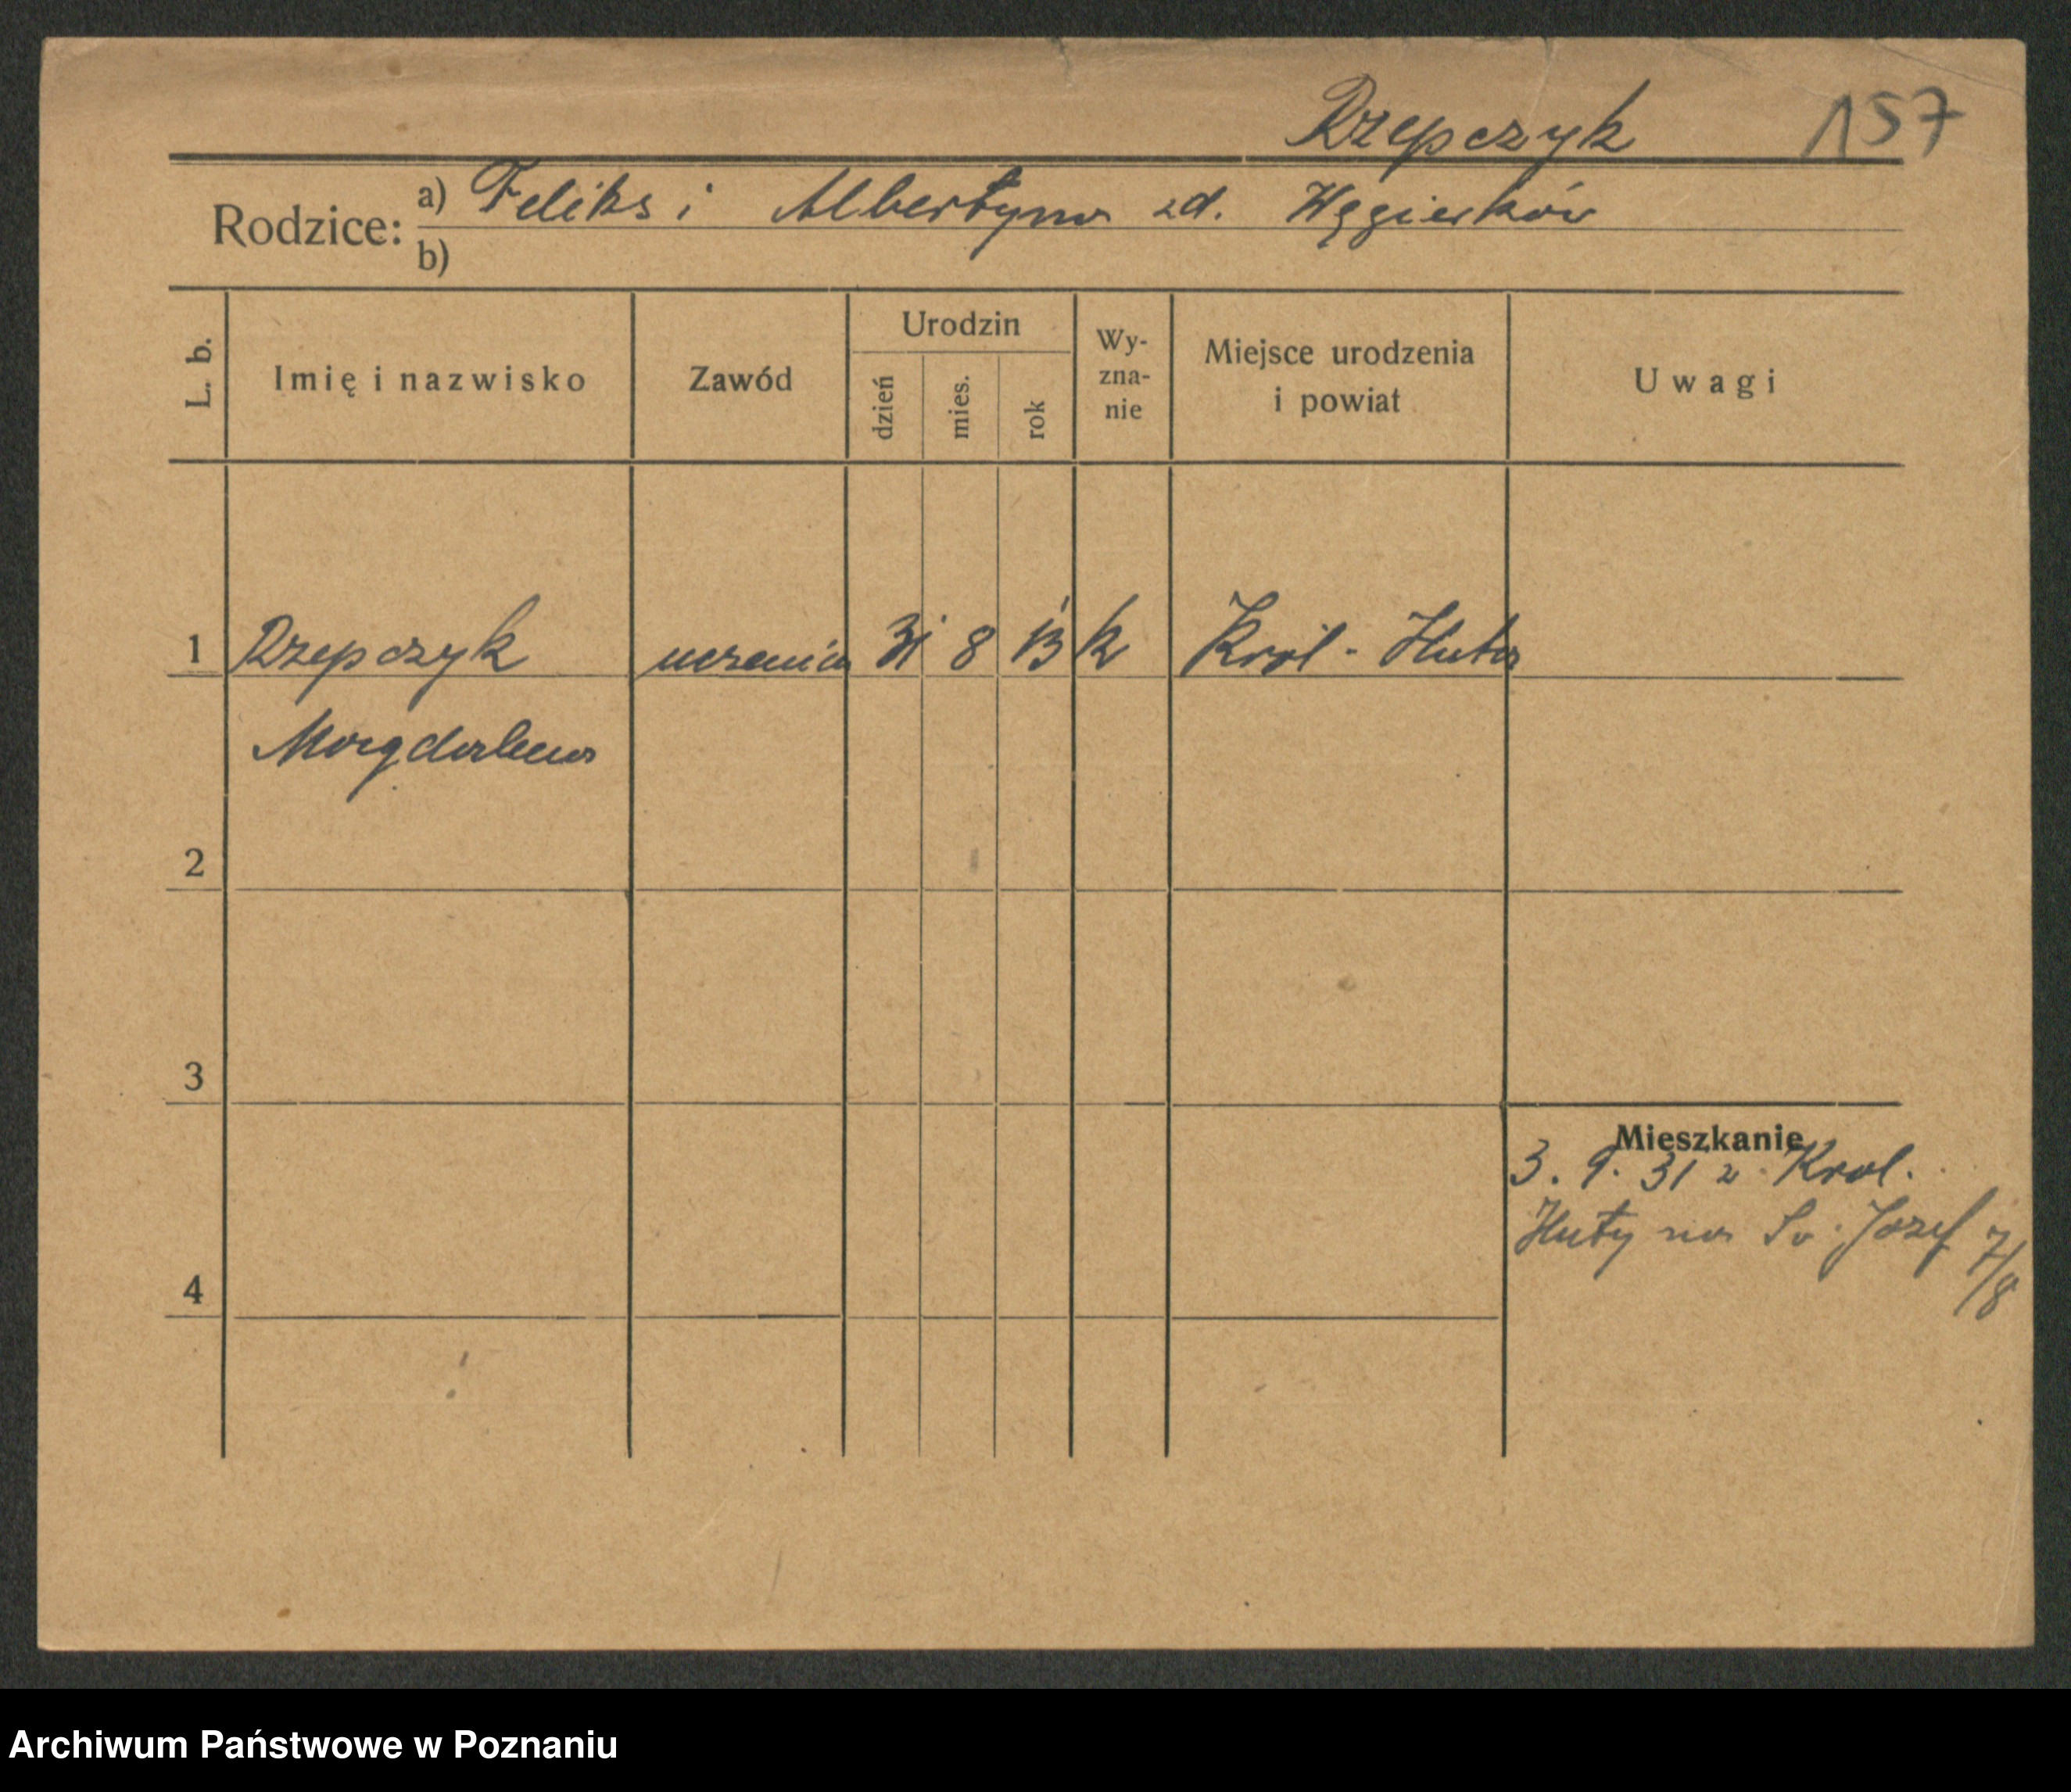 Rzepczyk 157
Rodzice: a) Feliks i Albertyna zd. Węgierków
b)
L. b. Imię i nazwisko Zawód Urodzin dzień mies. rok Wy-zna-nie Miejsce urodzenia i powiat Uwagi
1 Rzepczyk uczenica 31 8 13 k Król-Huta
Magdalena
2
3
Mieszkanie
3. 9. 31 z Krol.
Huty na Św. Józef 7/8
4
Archiwum Państwowe w Poznaniu